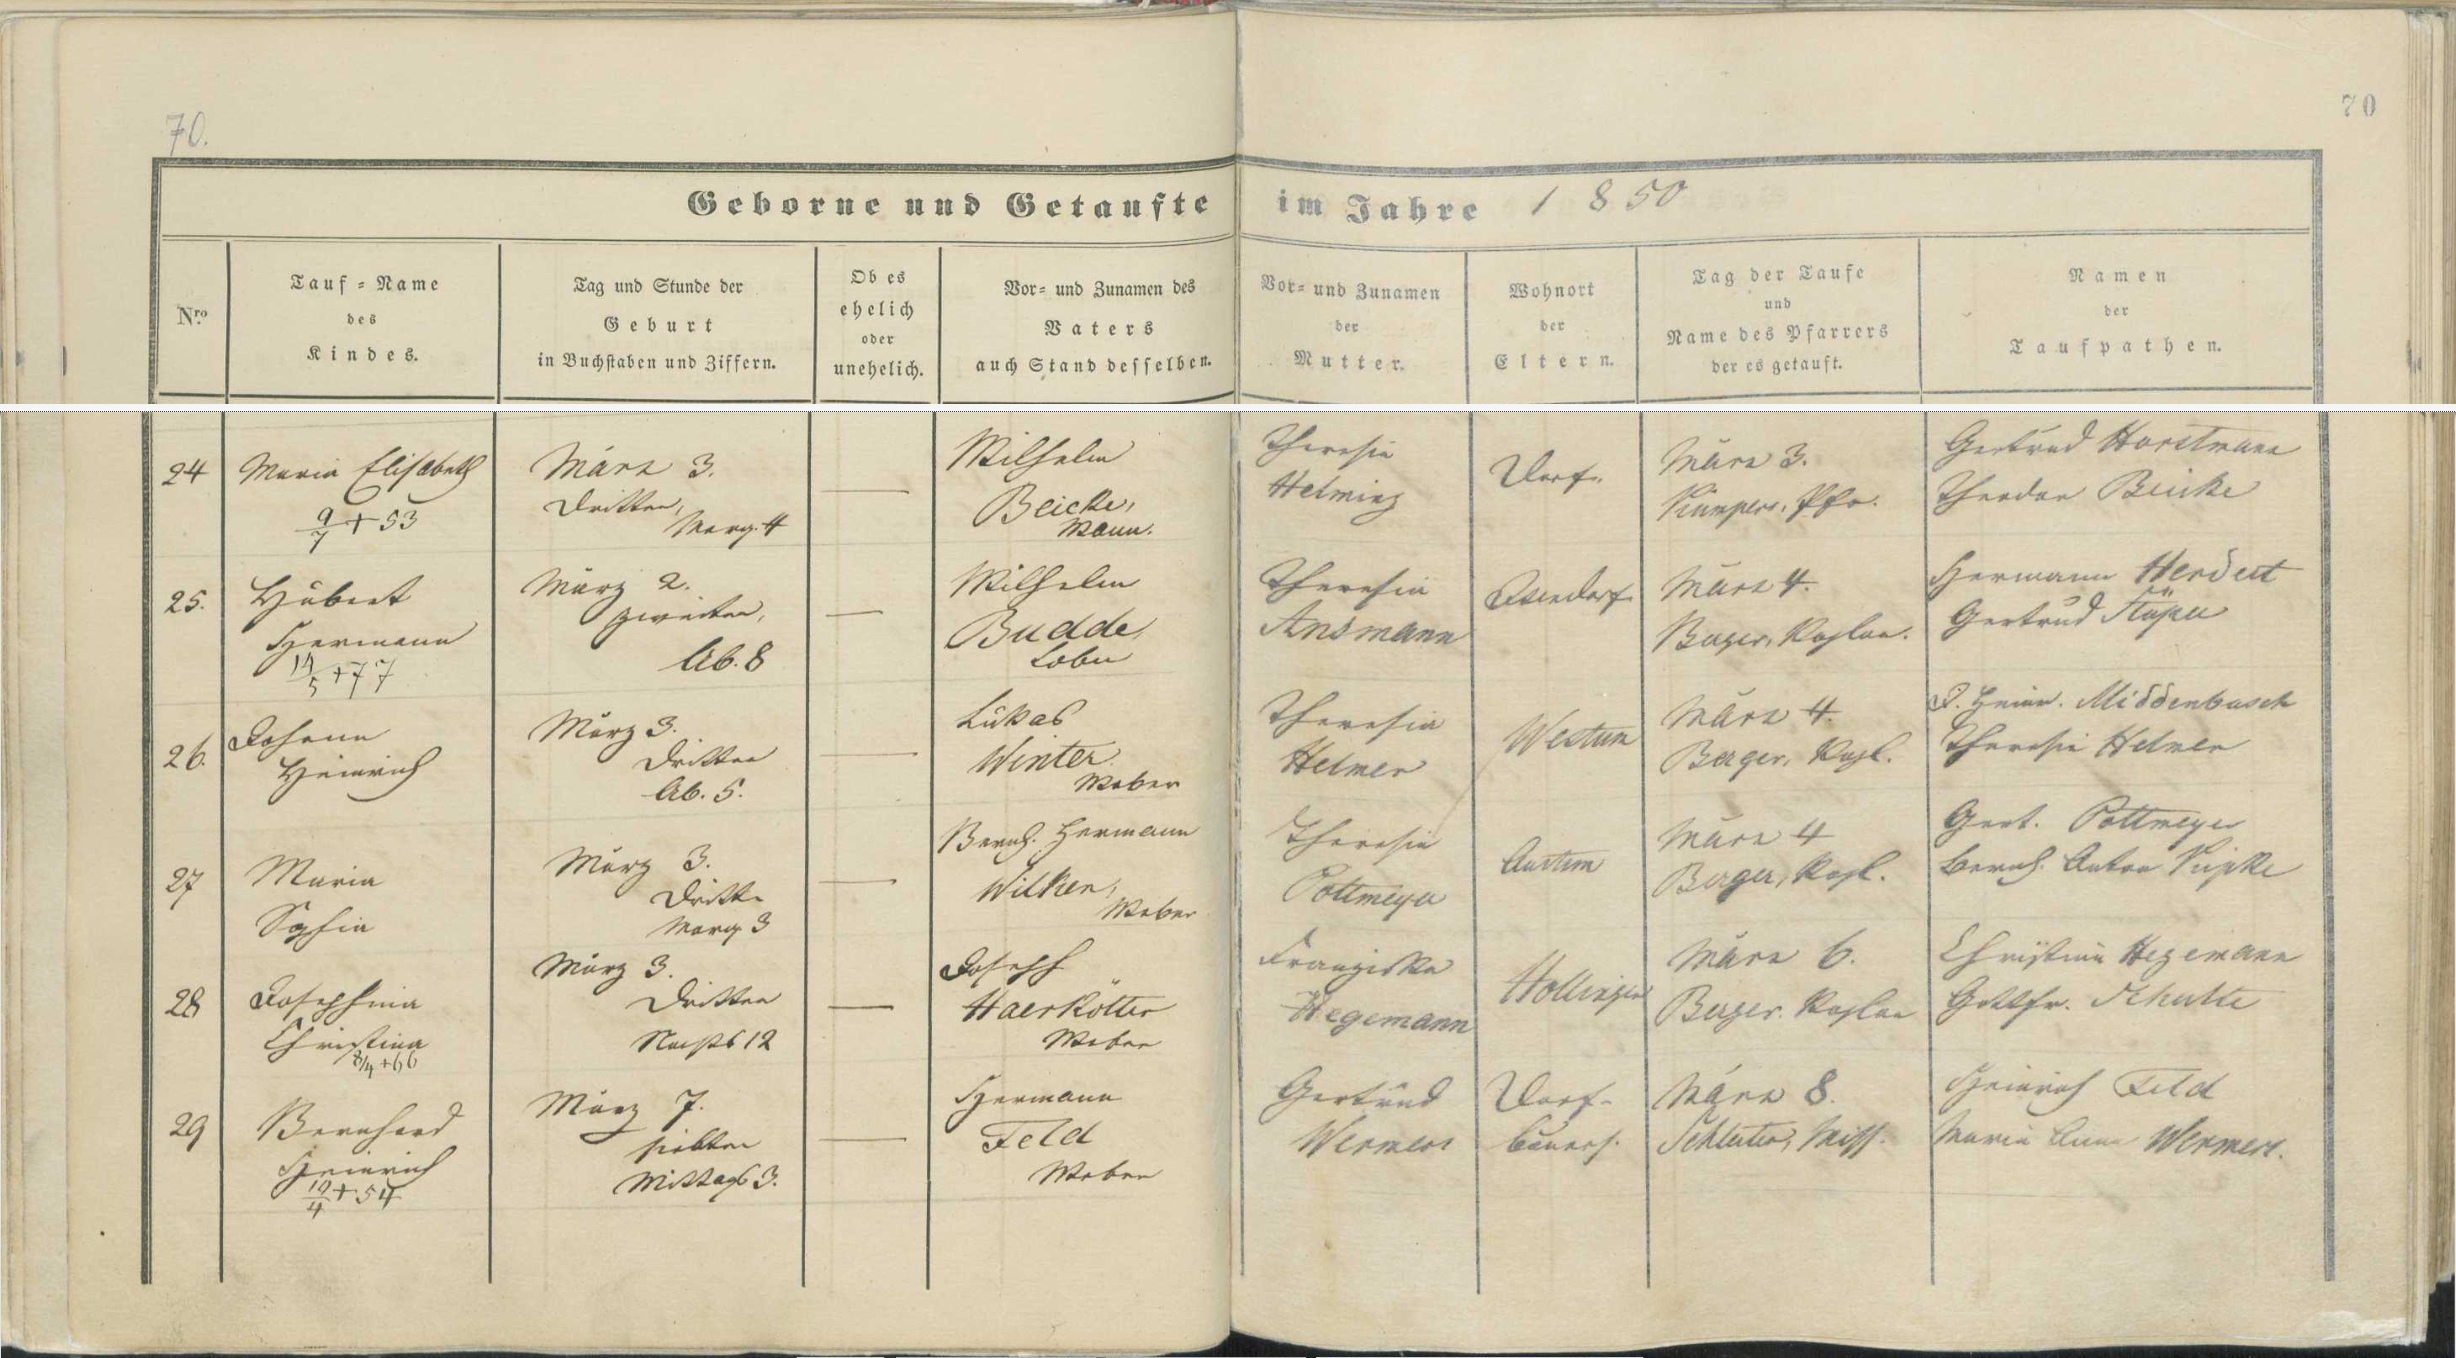 70.
70
Geborne und Getaufte im Jahre 1850
Nro.
Tauf-Name
des
Kindes.
Tag und Stunde der
Geburt
in Buchstaben und Ziffern.
Ob es
ehelich
oder
unehelich.
Vor- und Zunamen des
Vaters
auch Stand desselben.
Vor- und Zunamen
der
Mutter.
Wohnort
der
Eltern.
Tag der Taufe
und
Name des Pfarrers
der es getauft.
Namen
der
Taufpathen.
24
Maria Elisabeth
9/7 + 53
März 3.
dritten,
Morg. 4
—
Wilhelm
Beicke,
Theresia
Helming
Dorf.
März 3.
Kümpers, Pfr.
Gertrud Horstmann
Theodor Beicke
25.
Hubert
Hermann
/5 + 77
März 2.
zweiten,
Ab. 8
—
Wilhelm
Budde,
Theresia
Ansmann
März 4.
Berger, Kaplan.
Hermann
Gertrud
26.
Johann
Heinrich
März 3.
dritten
Ab. 5.
—
Lukas
Winter
Weber
Theresia
Helmer
Westum
März 4.
Berger, Kapl.
J. Heinr. Middenbusch
Theresia Helmer
27
Maria
Sophia
März 3.
dritte
Morg. 3
—
Bernh. Hermann
Wilken,
Weber
Theresia
Pottmeyer
Austum
März 4
Berger, Kapl.
Gert. Pottmeyer
Bernh. Anton
28
Josephina
Christina
8/4 + 66
März 3.
dritten
Nachts 12
—
Joseph
Haerkötter
Weber
Franziska
Hegemann
Hollingen
März 6.
Berger, Kaplan
Christina Hegemann
Gottfr. Schulte
29
Bernhard
Heinrich
19/4 + 54
März 7.
siebten
Mittags 3.
—
Hermann
Feld
Weber
Gertrud
Wermers
Dorf-
bauersch.
März 8.
Schlüter, Miss.
Heinrich Feld
Maria Anna Wermers.